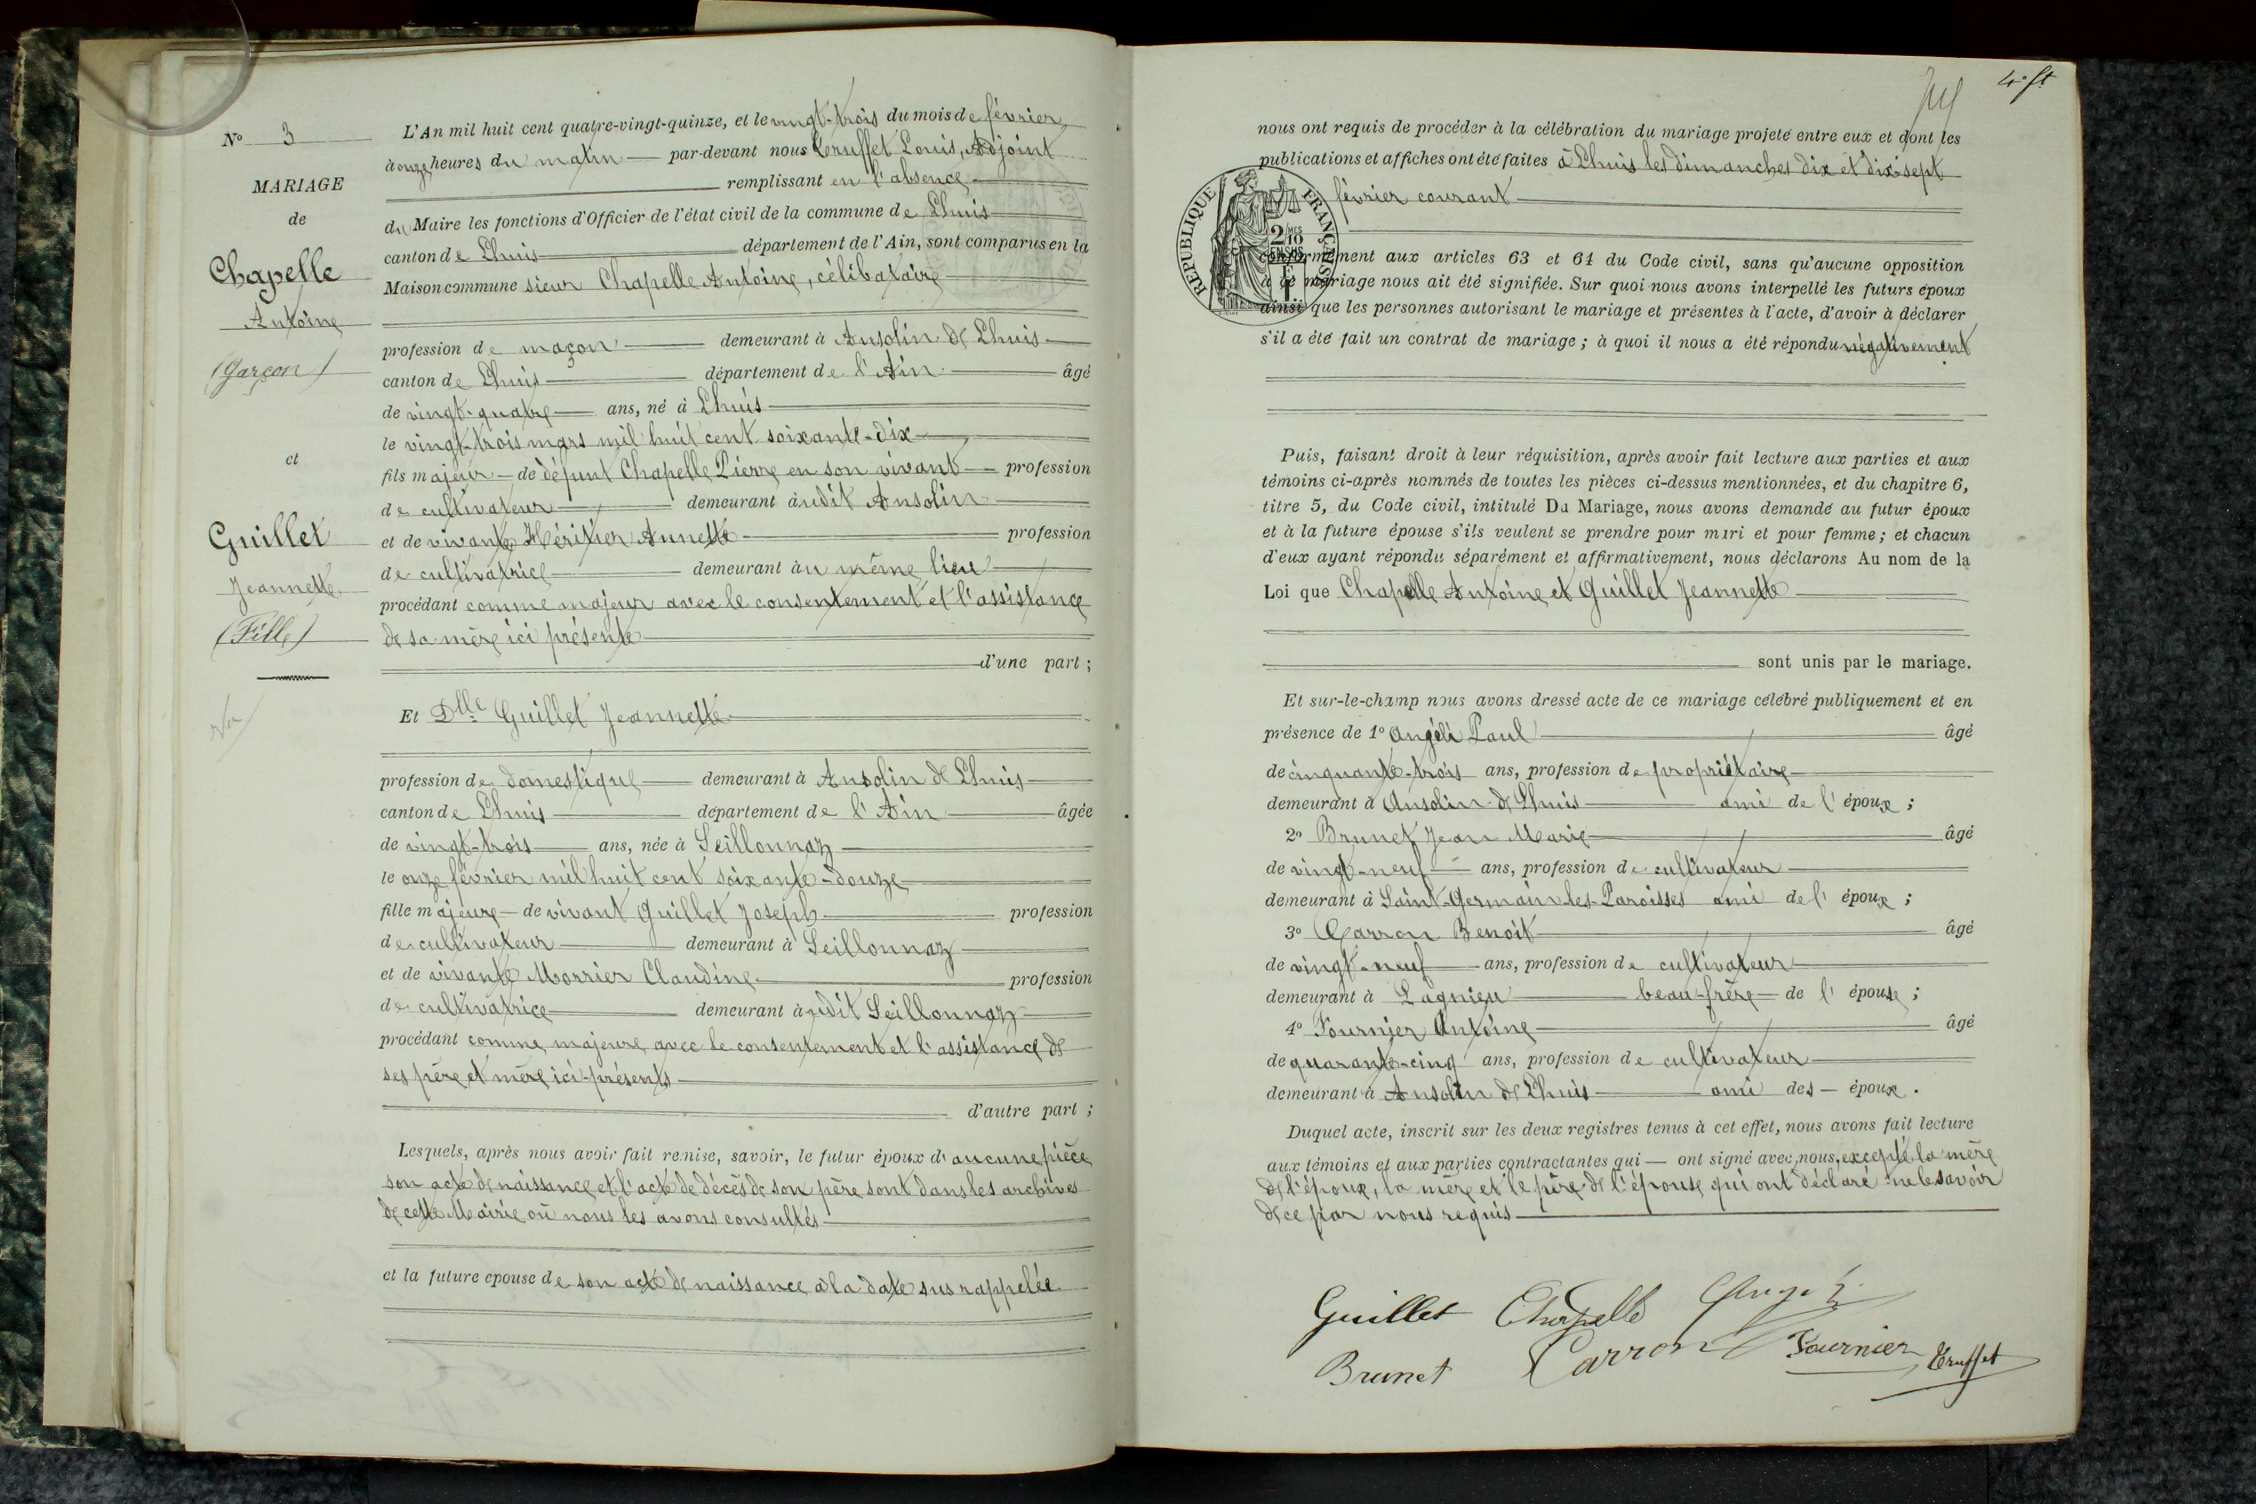 N° 3
MARIAGE
de
Chapelle
Antoine
(garçon)
et
Guillet
Jeannette
(Fille)
L'An mil huit cent quatre-vingt-quinze, et le vingt-trois du mois de février
à onze heures du matin par-devant nous Truffet Louis, Adjoint
remplissant en l'absence
du Maire les fonctions d'Officier de l'état civil de la commune de Lhuis
canton de Lhuis département de l'Ain, sont comparus en la
Maison commune sieur Chapelle Antoine, célibataire
profession de maçon demeurant à Ansolin de Lhuis
canton de Lhuis département de l'Ain âgé
de vingt-quatre ans, né à Lhuis
le vingt-trois mars mil huit cent soixante-dix
fils majeur de défunt Chapelle Pierre en son vivant profession
de cultivateur demeurant audit Ansolin
et de vivante Héritier Annette profession
de cultivatrice demeurant au même lieu
procédant comme majeur avec le consentement et l'assistance
de sa mère ici présente
d'une part ;
Et Dlle Guillet Jeannette
profession de domestique demeurant à Ansolin de Lhuis
canton de Lhuis département de l'Ain âgée
de vingt-trois ans, née à Seillonnaz
le onze février mil huit cent soixante-douze
fille majeure de vivant Guillet Joseph profession
de cultivateur demeurant à Seillonnaz
et de vivante Morrier Claudine profession
de cultivatrice demeurant audit Seillonnaz
procédant comme majeure avec le consentement et l'assistance de
ses père et mère ici-présents
d'autre part ;
Lesquels, après nous avoir fait remise, savoir, le futur époux d'aucune pièce
son acte de naissance et l'acte de décès de son père sont dans les archives
de cette Mairie où nous les avons consultés
et la future épouse de son acte de naissance à la date sus rappelée
nous ont requis de procéder à la célébration du mariage projeté entre eux et dont les
publications et affiches ont été faites à Lhuis les dimanches dix et dix-sept
février courant
RÉPUBLIQUE FRANÇAISE
2/10 MES
EN SUS
1F
conformément aux articles 63 et 64 du Code civil, sans qu'aucune opposition
à ce mariage nous ait été signifiée. Sur quoi nous avons interpellé les futurs époux
ainsi que les personnes autorisant le mariage et présentes à l'acte, d'avoir à déclarer
s'il a été fait un contrat de mariage ; à quoi il nous a été répondu négativement
Puis, faisant droit à leur réquisition, après avoir fait lecture aux parties et aux
témoins ci-après nommés de toutes les pièces ci-dessus mentionnées, et du chapitre 6,
titre 5, du Code civil, intitulé Du Mariage, nous avons demandé au futur époux
et à la future épouse s'ils veulent se prendre pour mari et pour femme ; et chacun
d'eux ayant répondu séparément et affirmativement, nous déclarons Au nom de la
Loi que Chapelle Antoine et Guillet Jeannette
sont unis par le mariage.
Et sur-le-champ nous avons dressé acte de ce mariage célébré publiquement et en
présence de 1° Angéli Paul âgé
de cinquante-trois ans, profession de propriétaire
demeurant à Ansolin de Lhuis ami de l'époux ;
2° Brunet Jean Marie âgé
de vingt-neuf ans, profession de cultivateur
demeurant à Saint-Germain-les-Paroisses ami de l'époux ;
3° Carron Benoit âgé
de vingt-neuf ans, profession de cultivateur
demeurant à Lagnieu beau-frère de l'épouse ;
4° Fournier Antoine âgé
de quarante-cinq ans, profession de cultivateur
demeurant à Ansolin de Lhuis ami des époux.
Duquel acte, inscrit sur les deux registres tenus à cet effet, nous avons fait lecture
aux témoins et aux parties contractantes qui ont signé avec nous, excepté la mère
de l'époux, la mère et le père de l'épouse qui ont déclaré ne le savoir
de ce par nous requis
Guillet Chapelle Angeli
Brunet Carron Fournier Truffet